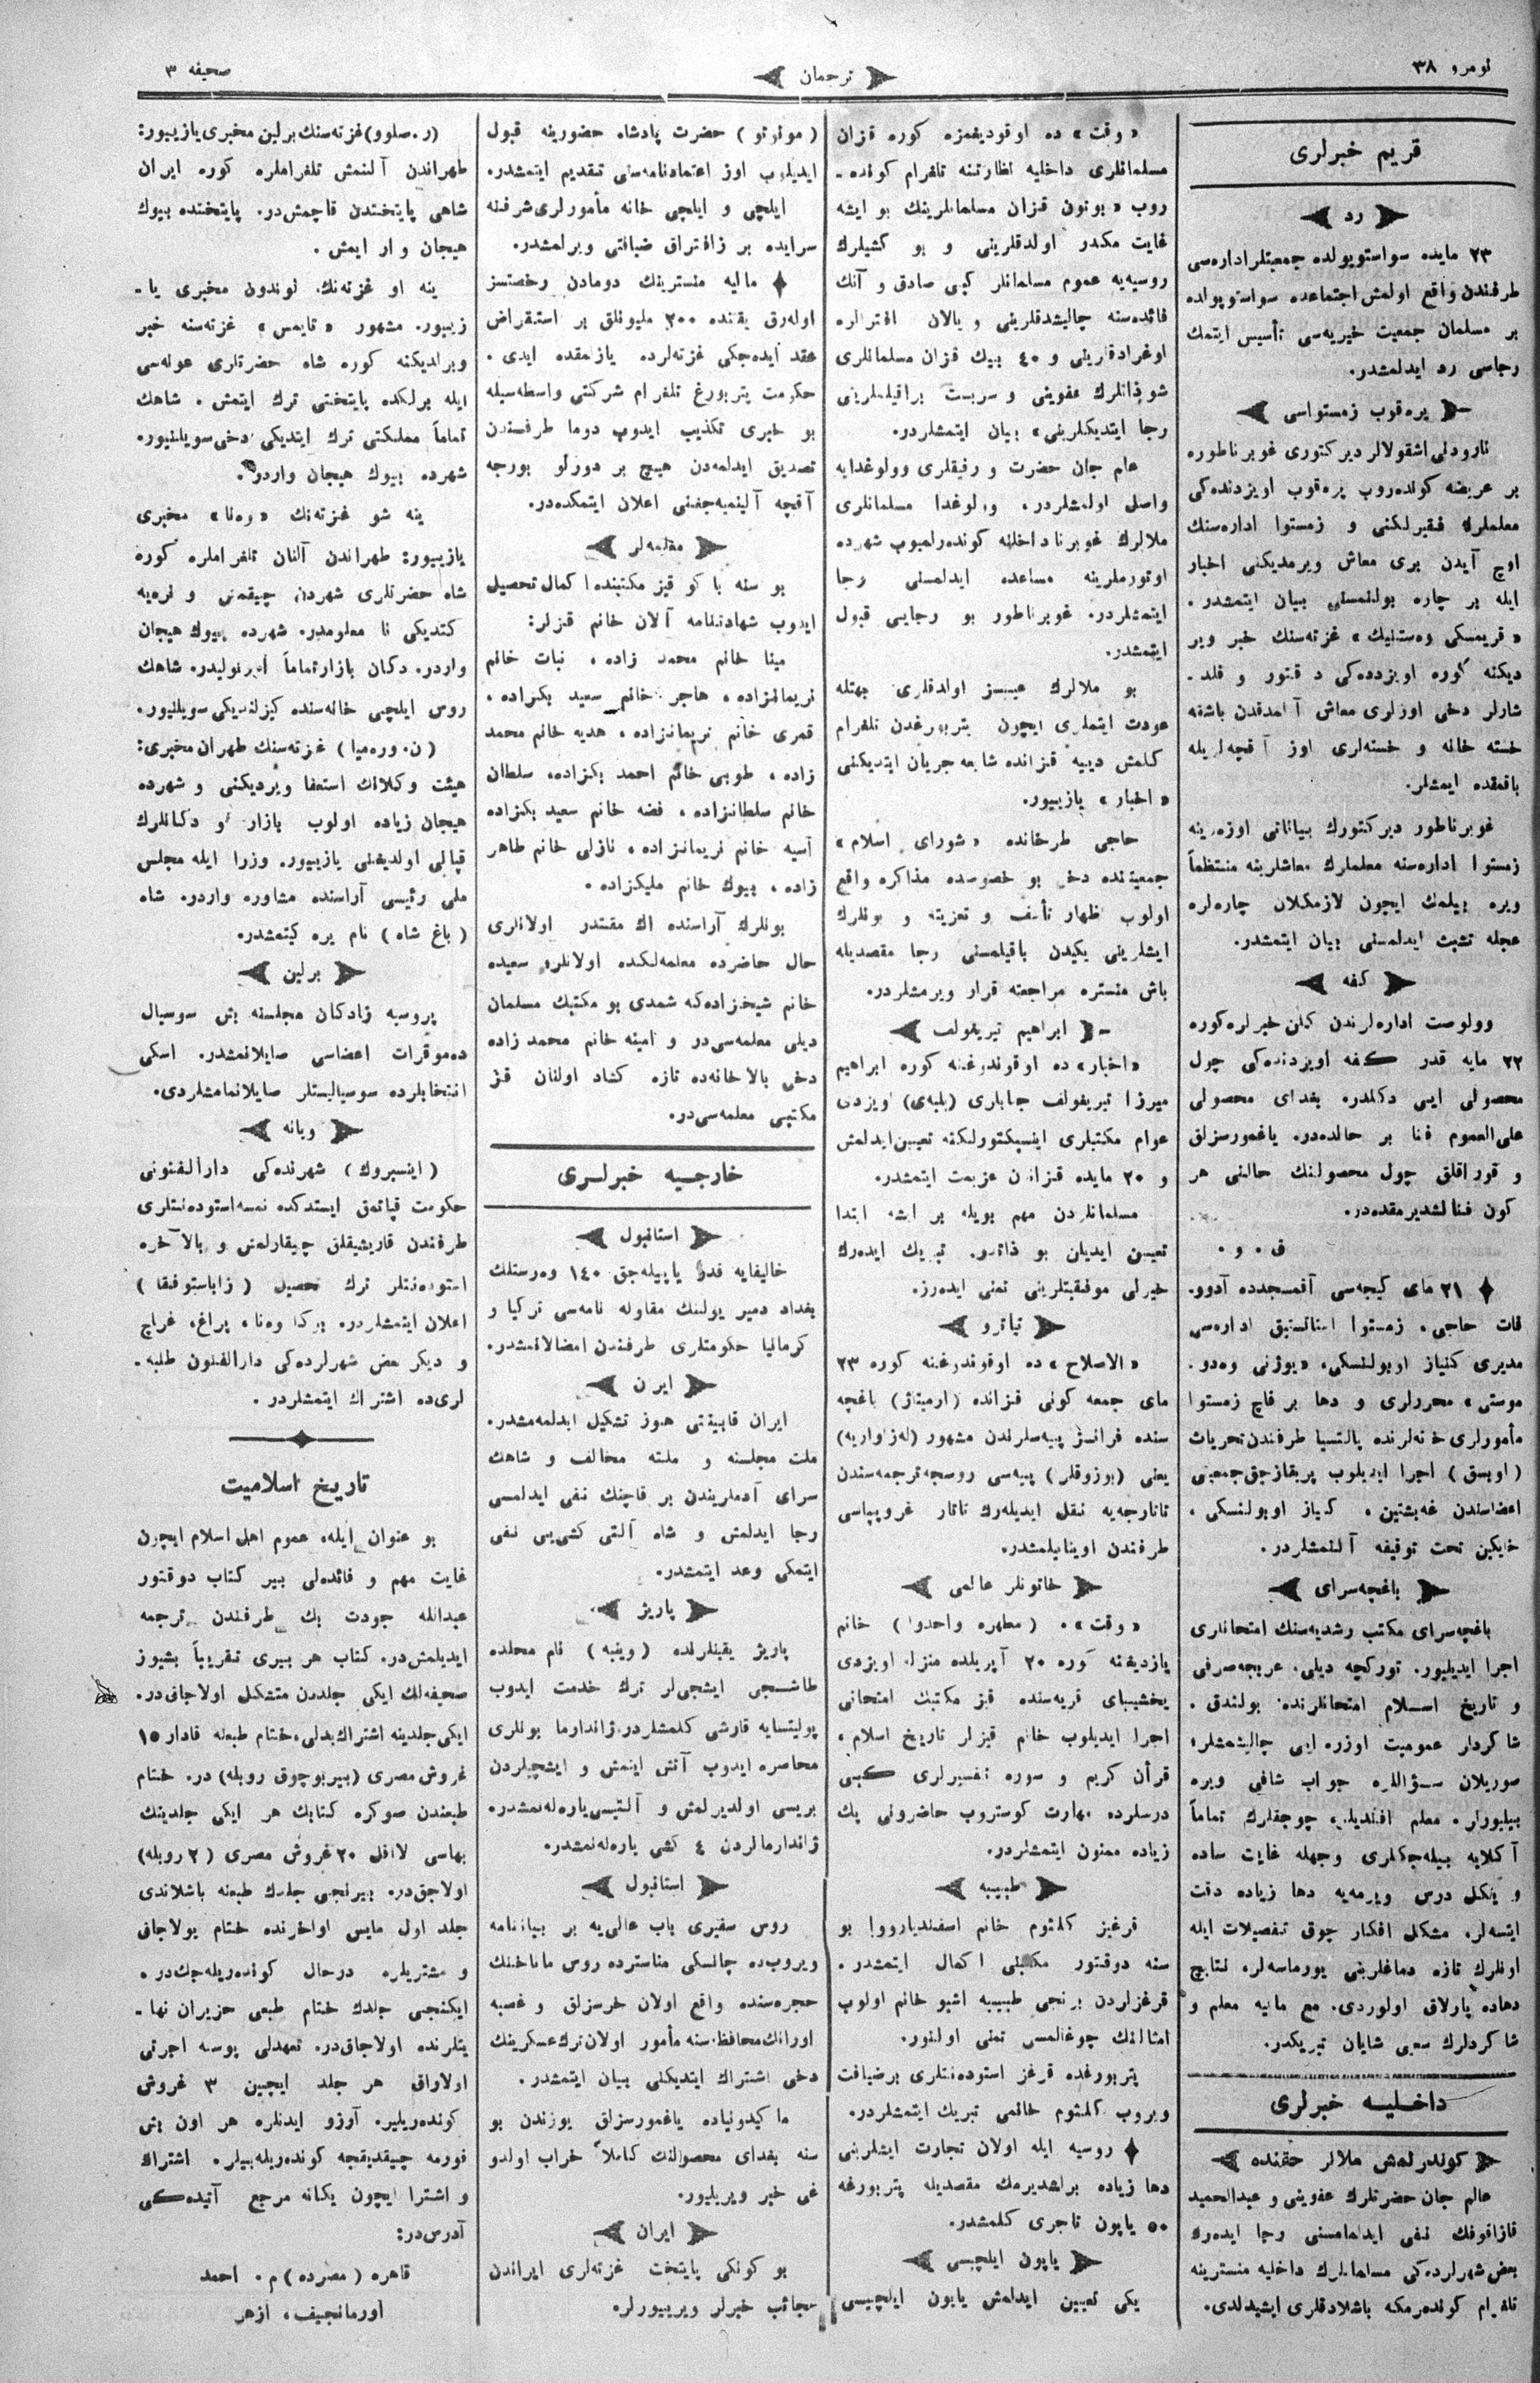 نومرو ٣٨
ترجمان
صحيفه ٣
قريم خبرلرى
رد
٢٣ مايده سواستوپولده جمعيتلر اداره‌سى
طرفندن واقع اولمش اجتماعده سواستوپولده
بر مسلمان جمعيت خيريه‌سى تأسيس ايتمك
رجاسى رد ايدلمشدر.
پره‌قوب زمستواسى
نارودنى اشقولالر ديركتورى غوبرناطوره
بر عريضه كونده‌روب پره‌قوب اويزدنده‌كى
معلملرڭ فقيرلكنى و زمستوا اداره‌سنڭ
اوچ آيدن برى معاش ويرمديكنى اخبار
ايله بر چاره بولنمسنى بيان ايتمشدر.
«قريمسكى وه‌ستنيك» غزته‌سنڭ خبر وير
ديكنه كوره اويزدده‌كى دقتور و فلد-
شارلر دخى اوزلرى معاش آلمدقدن باشقه
خسته خانه و خسته‌لرى اوز آقچه‌لريله
باقمقده ايمشلر.
غوبرناطور ديركتورڭ بياناتى اوزه‌رينه
زمستوا اداره‌سنه معلملرڭ معاشلرينه منتظماً
ويره بيلمك ايچون لازمكلان چاره‌لره
عجله تشبث ايدلمسنى بيان ايتمشدر.
كفه
وولوست اداره‌لرندن كلن خبرلره كوره
٢٢ مايه قدر كفه اويزدنده‌كى چول
محصولى ايى دكلدر. بغداى محصولى
على العموم فنا بر حالده‌در. ياغمورسزلق
و قوراقلق چول محصولنڭ حالنى هر
كون فنالشديرمقده‌در.
ف. و.
٢١ ماى كيجه‌سى آقمسجدده آدوو.
قات حاجى، زمستوا استاتستيق اداره‌سى
مديرى كنياز اوبولنسكى، «يوژنى وه‌دو.
موستى» محررلرى و دها بر قاچ زمستوا
مأمورلرى خانه‌لرنده پالتسيا طرفندن تحريات
(اوبسق) اجرا ايديلوب پريقازچق جمعيتى
اعضاسندن غه‌بشتين، كنياز اوبولنسكى،
خايكين تحت توقيفه آلنمشلردر.
باغچه‌سراى
باغچه‌سراى مكتب رشديه‌سنڭ امتحانلرى
اجرا ايديليور. توركچه ديلى، عربجه صرفى
و تاريخ اسلام امتحانلرنده بولندق.
شاكردلر عموميت اوزره ايى چاليشمشلر؛
صوريلان سؤاللره جواب شافى ويره
بيليورلر. معلم افنديلر، چوجقلرڭ تماماً
آڭلايه بيله‌جكلرى وجهله غايت ساده
و يڭكل درس ويرمه‌يه دها زياده دقت
ايتسه‌لر، مشكل افكار چوق تفصيلات ايله
اونلرڭ تازه دماغلرينى يورماسه‌لر، نتايج
دهاده پارلاق اولوردى. مع مافيه معلم و
شاكردلرڭ سعيى شايان تبريكدر.
داخليه خبرلرى
كوندرلمش ملالر حقنده
عالم جان حضرتلرڭ عفوينى و عبدالحميد
قازاقوفڭ نفى ايدلمامسنى رجا ايده‌رك
بعض شهرلرده‌كى مسلمانلرڭ داخليه منسترينه
تلغرام كوندرمكه باشلادقلرى ايشيدلدى.
«وقت» ده اوقوديغمزه كوره قزان
مسلمانلرى داخليه نظارتنه تلغرام كونده-
روب «بوتون قزان مسلمانلرينڭ بو ايشه
غايت مكدر اولدقلرينى و بو كشيلرڭ
روسيه‌يه عموم مسلمانلر كبى صادق و آنڭ
فائده‌سنه چاليشدقلرينى و يالان افترالره
اوغرادقلرينى و ٤٠ بيڭ قزان مسلمانلرى
شو ذاتلرڭ عفوينى و سربست براقيلملرينى
رجا ايتديكلرينى» بيان ايتمشلردر.
عالم جان حضرت و رفيقلرى وولوغدايه
واصل اولمشلردر. وولوغدا مسلمانلرى
ملالرڭ غوبرنا داخلنه كونده‌رلميوب شهرده
اوتورملرينه مساعده ايدلمسنى رجا
ايتمشلردر. غوبرناطور بو رجايى قبول
ايتمشدر.
بو ملالرڭ عيبسز اولدقلرى جهتله
عودت ايتملرى ايچون پتربورغدن تلغرام
كلمش ديیه قزانده شايعه جريان ايتديكنى
«اخبار» يازيیور.
حاجى طرخانده «شوراى اسلام»
جمعيتنده دخى بو خصوصده مذاكره واقع
اولوب اظهار تأسف و تعزيت و بونلرڭ
ايشلرينى يكيدن باقيلمسنى رجا مقصديله
باش منستره مراجعته قرار ويرمشلردر.
ابراهيم تيريغولف
«اخبار» ده اوقوندوغنه كوره ابراهيم
ميرزا تيريغولف جنابلرى (بلبه‌ى) اويزدى
عوام مكتبلرى اينسپكتورلكنه تعيين ايدلمش
و ٢٠ مايده قزاندن عزيمت ايتمشدر.
مسلمانلردن مهم بويله بر ايشه ابتدا
تعيين ايديلن بو ذاتدر. تبريك ايده‌رك
خيرلى موفقيتلرينى تمنى ايده‌رز.
تياترو
«الاصلاح» ده اوقوندوغنه كوره ٢٣
ماى جمعه كونى قزانده (ارميتاژ) باغچه
سنده فرانسز پيه‌سلرندن مشهور (له‌زواريه)
يعنى (بوزوقلر) پيه‌سى روسجه ترجمه‌سندن
تاتارجه‌يه نقل ايديله‌رك تاتار غروپپاسى
طرفندن اوينايلمشدر.
خاتونلر عالمى
«وقت». (مطهره واحدوا) خانم
يازديغنه كوره ٢٠ آپريلده منزله اويزدى
يخشيباى قريه‌سنده قيز مكتبنڭ امتحانى
اجرا ايديلوب خانم قيزلر تاريخ اسلام،
قرأن كريم و سوره تفسيرلرى كبى
درسلرده مهارت كوستروب حاضرونى پك
زياده ممنون ايتمشلردر.
طبيبه
قرغيز كلثوم خانم اسفندياروا بو
سنه دوقتور مكتبنى اكمال ايتمشدر.
قرغزلردن برنجى طبيبه اشبو خانم اولوب
امثالنڭ چوغالمسى تمنى اولنور.
پتربورغده قرغز استودنتلرى بر ضيافت
ويروب كلثوم خانمى تبريك ايتمشلردر.
روسيه ايله اولان تجارت ايشلرينى
دها زياده براشديرمك مقصديله پتربورغه
٥٠ ياپون تاجرى كلمشدر.
ياپون ايلچيسى
يكى تعيين ايدلمش ياپون ايلچيسى
(موتونو) حضرت پادشاه حضورينه قبول
ايديلوب اوز اعتمادنامه‌سنى تقديم ايتمشدر.
ايلچى و ايلچى خانه مأمورلرى شرفنه
سرايده بر زافتراق ضيافتى ويرلمشدر.
ماليه منسترينڭ دومادن رخصتسز
اوله‌رق يقنده ٢٠٠ مليونلق بر استقراض
عقد ايده‌جكى غزته‌لرده يازلمقده ايدى.
حكومت پتربورغ تلغرام شركتى واسطه‌سيله
بو خبرى تكذيب ايدوب دوما طرفندن
تصديق ايدلمه‌دن هيچ بر دورلو بورجه
آقچه آلينميه‌جغنى اعلان ايتمكده‌در.
معلمه‌لر
بو سنه باكو قيز مكتبنده اكمال تحصيل
ايدوب شهادتنامه آلان خانم قزلر:
مينا خانم محمد زاده، نبات خانم
نريمانزاده، هاجر خانم سعيد بكزاده،
قمرى خانم نريمانزاده، هديه خانم محمد
زاده، طوبى خانم احمد بكزاده، سلطان
خانم سلطانزاده، فضه خانم سعيد بكزاده
آسيه خانم نريمانزاده، نازلى خانم طاهر
زاده، بيوك خانم مليكزاده.
بونلرڭ آراسنده اڭ مقتدر اولانلرى
حال حاضرده معلمه‌لكده اولانلر، سعيده
خانم شيخزاده‌كه شمدى بو مكتبڭ مسلمان
ديلى معلمه‌سى‌در و امينه خانم محمد زاده
دخى بالاخانه‌ده تازه كشاد اولنان قز
مكتبى معلمه‌سى‌در.
خارجيه خبرلرى
استانبول
خاليفايه قدر ياپيله‌جق ١٤٠ وه‌رستلك
بغداد دمير يولينڭ مقاوله نامه‌سى تركيا و
كرمانيا حكومتلرى طرفندن امضالانمشدر.
ايران
ايران قابينه‌تى هنوز تشكيل ايدلمه‌مشدر.
ملت مجلسنه و ملته مخالف و شاهڭ
سراى آدملريندن بر قاچنڭ نفى ايدلمسى
رجا ايدلمش و شاه آلتى كشى‌يى نفى
ايتمكى وعد ايتمشدر.
پاريژ
پاريژ يقينلرنده (وينيه) نام محلده
طاشجى ايشجى‌لر ترك خدمت ايدوب
پوليتسايه قارشى كلمشلردر. ژاندارما بونلرى
محاصره ايدوب آتش ايتمش و ايشچيلردن
بريسى اولديرلمش و آلتيسى ياره‌له‌نمشدر.
ژاندارمالردن ٤ كشى ياره‌له‌نمشدر.
استانبول
روس سفيرى باب عالى‌يه بر بياننامه
ويروبده چانسكى مناسترده روس ماناخنڭ
حجره‌سنده واقع اولان خرسزلق و غصبه
اورانڭ محافظه‌سنه مأمور اولان ترك عسكرينڭ
دخى اشتراك ايتديكنى بيان ايتمشدر.
ماكيدونياده ياغمورسزلق يوزندن بو
سنه بغداى محصولنڭ كاملاً خراب اولدو
غى خبر ويريليور.
ايران
بو كونكى پايتخت غزته‌لرى ايراندن
عجائب خبرلر ويريیورلر.
(ر. صلوو) غزته‌سنڭ برلين مخبرى يازيیور:
طهراندن آلنمش تلغراملره كوره ايران
شاهى پايتختدن قاچمش‌در. پايتختده بيوك
هيجان وار ايمش.
ينه او غزته‌نڭ لوندون مخبرى يا-
زيیور. مشهور «تايمس» غزته‌سنه خبر
ويرلديكنه كوره شاه حضرتلرى عوله‌سى
ايله برلكده پايتختى ترك ايتمش. شاهڭ
تماماً مملكتى ترك ايتديكى دخى سويلنيور.
شهرده بيوك هيجان واردر.
ينه شو غزته‌نڭ «وه‌نا» مخبرى
يازيیور: طهراندن آلنان تلغراملره كوره
شاه حضرتلرى شهردن چيقمش و نره‌يه
كتديكى نا معلومدر. شهرده بيوك هيجان
واردر. دكان بازار تماماً اورتوليدر. شاهڭ
روس ايلچى خانه‌سنده كيزلنديكى سويلنيور.
(ن. وره‌ميا) غزته‌سنڭ طهران مخبرى:
هيئت وكلانڭ استعفا ويرديكنى و شهرده
هيجان زياده اولوب بازار و دكانلرڭ
قپالى اولديغنى يازيیور. وزرا ايله مجلس
ملى رئيسى آراسنده مشاوره واردر. شاه
(باغ شاه) نام يره كيتمشدر.
برلين
پروسيه زادكان مجلسنه بش سوسيال
ده‌موقرات اعضاسى صايلانمشدر. اسكى
انتخابلرده سوسياليستلر صايلانمامشلردى.
ويانه
(اينسبروك) شهرنده‌كى دارالفنونى
حكومت قپاتمق ايستدكده نمسه استوده‌نتلرى
طرفندن قاريشيقلق چيقارلمش و بالآخره
استوده‌نتلر ترك تحصيل (زاباستوفقا)
اعلان ايتمشلردر. بركا وه‌نا، پراغ، غراچ
و ديكر بعض شهرلرده‌كى دارالفنون طلبه-
لرى‌ده اشتراك ايتمشلردر.
تاريخ اسلاميت
بو عنوان ايله، عموم اهل اسلام ايچون
غايت مهم و فائده‌لى بير كتاب دوقتور
عبدالله جودت بك طرفندن ترجمه
ايديلمش‌در. كتاب هر بيرى تقريباً بشيوز
صحيفه‌لك ايكى جلددن متشكل اولاجاق‌در.
ايكى جلدينه اشتراك بدلى، ختام طبعنه قادار ١٥
غروش مصرى (بير بوچوق روبله) در. ختام
طبعندن صوكره كتابڭ هر ايكى جلدينڭ
بهاسى لااقل ٢٠ غروش مصرى (٢ روبله)
اولاجق‌در. بيرنجى جلدڭ طبعنه باشلاندى
جلد اول مايس اواخرنده ختام بولاجاق
و مشتريلره درحال كونده‌ريله‌جك‌در.
ايكنجى جلدڭ ختام طبعى حزيران نها-
يتلرنده اولاجاق‌در. تعهدلى پوسته اجرتى
اولاراق هر جلد ايچين ٣ غروش
كونده‌ريلير. آرزو ايدنلره هر اون بش
فورمه چيقديقجه كونده‌ريله‌بيلير. اشتراك
و اشترا ايچون يكانه مرجع آتيده‌كى
آدرس‌در:
قاهره (مصرده) م. احمد
اورمانجيف، ازهر